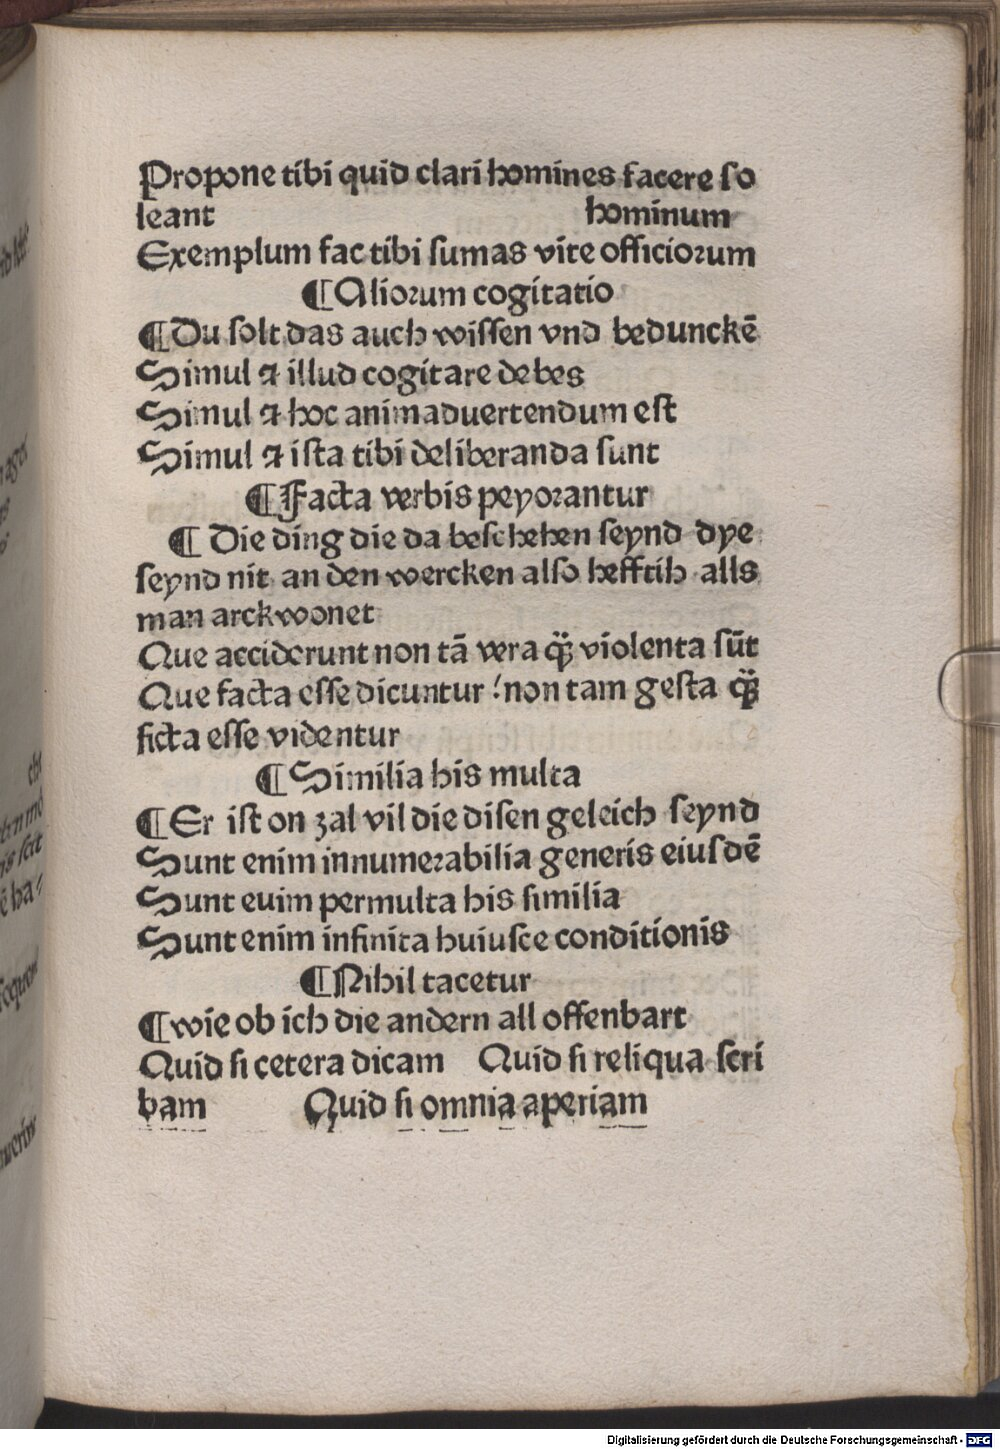 Propone tibi quid clari homines facere so
leant hominum
Exemplum fac tibi sumas vite officiorum
¶ Aliorum cogitatio
¶ Du solt das auch wissen vnd bedunckē
Simul ⁊ illud cogitare debes
Simul ⁊ hoc animaduertendum est
Simul ⁊ ista tibi deliberanda sunt
¶ Facta verbis peyorantur
¶ Die ding die da beschehen seynd dye
seynd nit an den wercken also hefftih alls
man arckwonet
Que acciderunt non tā vera q̈ violenta sūt
Que facta esse dicuntur / non tam gesta q̈
ficta esse videntur
¶ Similia his multa
¶ Er ist on zal vil die disen geleich seynd
Sunt enim innumerabilia generis eiusdē
Sunt euim permulta his similia
Sunt enim infinita huiusce conditionis
¶ Nihil tacetur
¶ wie ob ich die andern all offenbart
Quid si cetera dicam Quid si reliqua scri
bam Quid si omnia aperiam
Digitalisierung gefördert durch die Deutsche Forschungsgemeinschaft - DFG